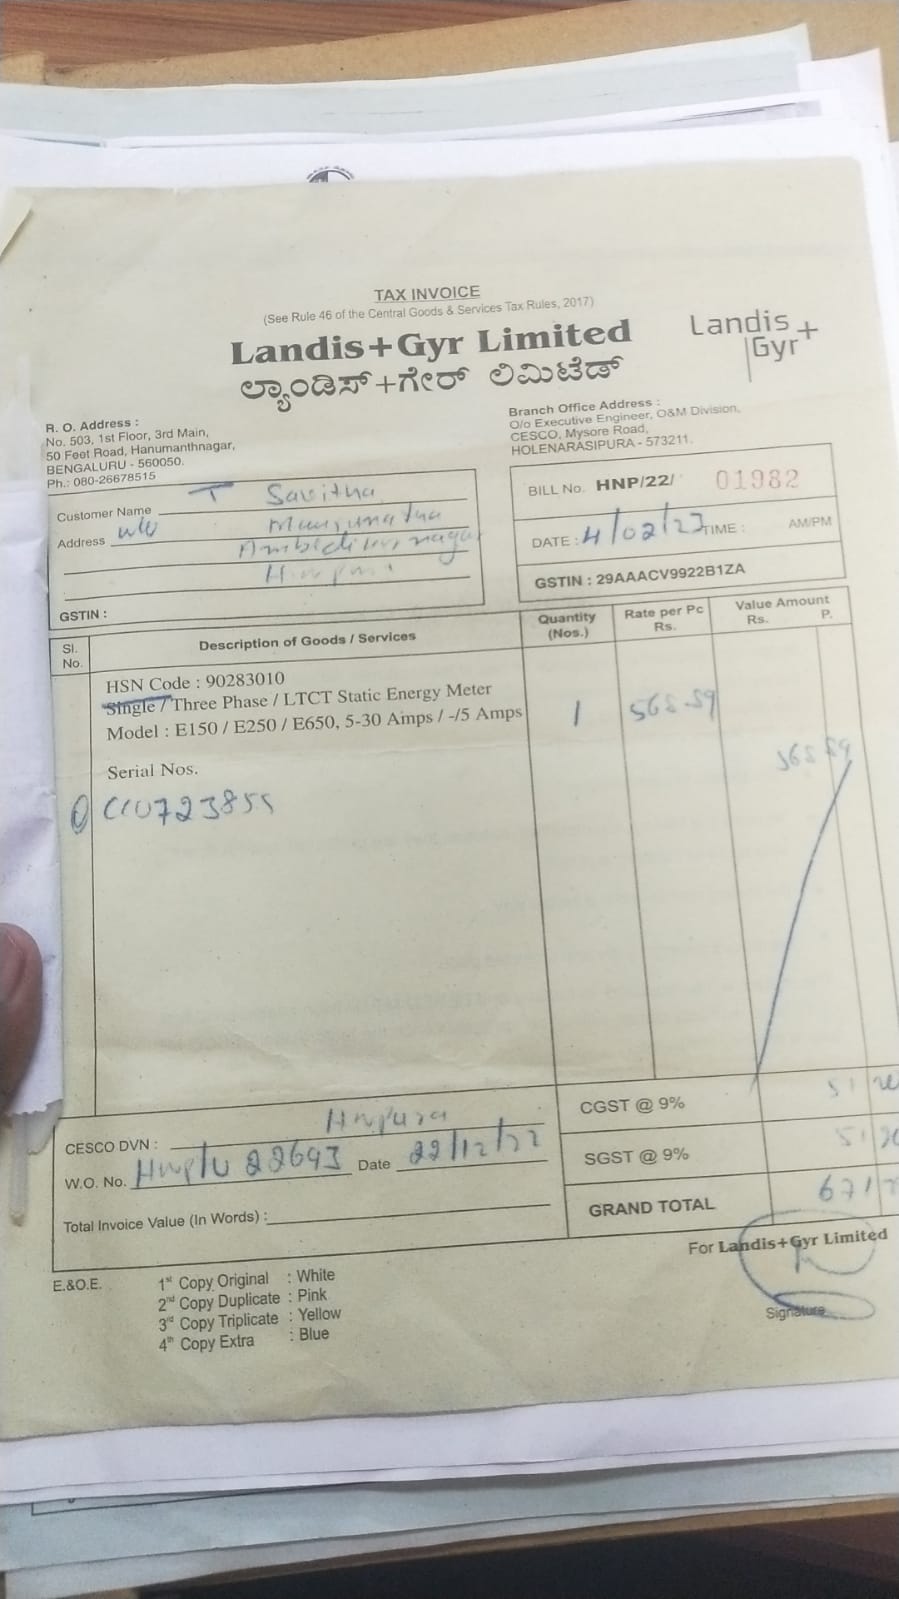 TAX INVOICE
(See Rule 46 of the Central Goods & Services Tax Rules, 2017)
Landis+Gyr Limited
ಲ್ಯಾಂಡಿಸ್+ಗೇರ್ ಲಿಮಿಟೆಡ್
Landis
Gyr+
R. O. Address :
No. 503, 1st Floor, 3rd Main,
50 Feet Road, Hanumanthnagar,
BENGALURU - 560050.
Ph.: 080-26678515
Branch Office Address :
O/o Executive Engineer, O&M Division,
CESCO, Mysore Road,
HOLENARASIPURA - 573211.
Customer Name T Savitha
Address w/o Manjunatha
GSTIN :
BILL No. HNP/22/ 01982
DATE : 4/02/23 TIME : AM/PM
GSTIN : 29AAACV9922B1ZA
Sl. No. Description of Goods / Services Quantity (Nos.) Rate per Pc Rs. Value Amount Rs. P.
HSN Code : 90283010
Single / Three Phase / LTCT Static Energy Meter
Model : E150 / E250 / E650, 5-30 Amps / -/5 Amps 1 568.89
568 89
Serial Nos.
CGST @ 9% 51
SGST @ 9% 51
GRAND TOTAL 671
CESCO DVN : Hnpura
W.O. No. 22693 Date 22/12/22
Total Invoice Value (In Words) :
For Landis+Gyr Limited
Signature
E.&O.E.
1st Copy Original : White
2nd Copy Duplicate : Pink
3rd Copy Triplicate : Yellow
4th Copy Extra : Blue